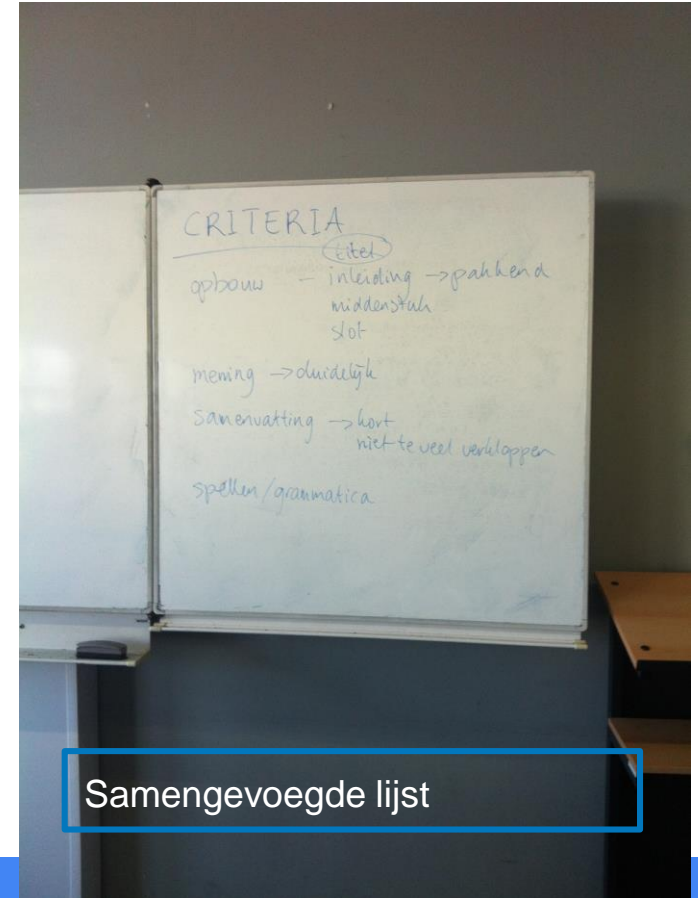 CRITERIA
titel
opbouw - inleiding → pakkend
middenstuk
slot
mening → duidelijk
samenvatting → kort
niet te veel verklappen
spellen/grammatica
Samengevoegde lijst